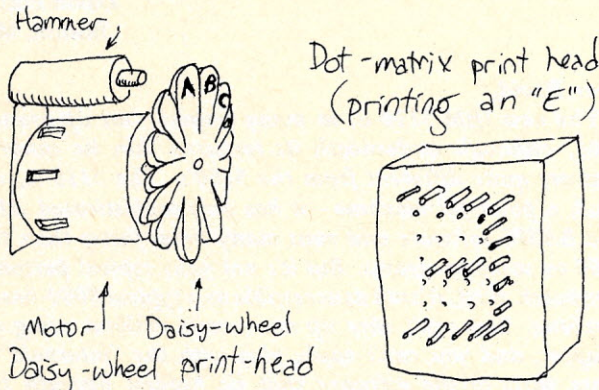 Hammer
A B C d
Motor Daisy-wheel
Daisy-wheel print-head
Dot-matrix print head
(printing an "E")